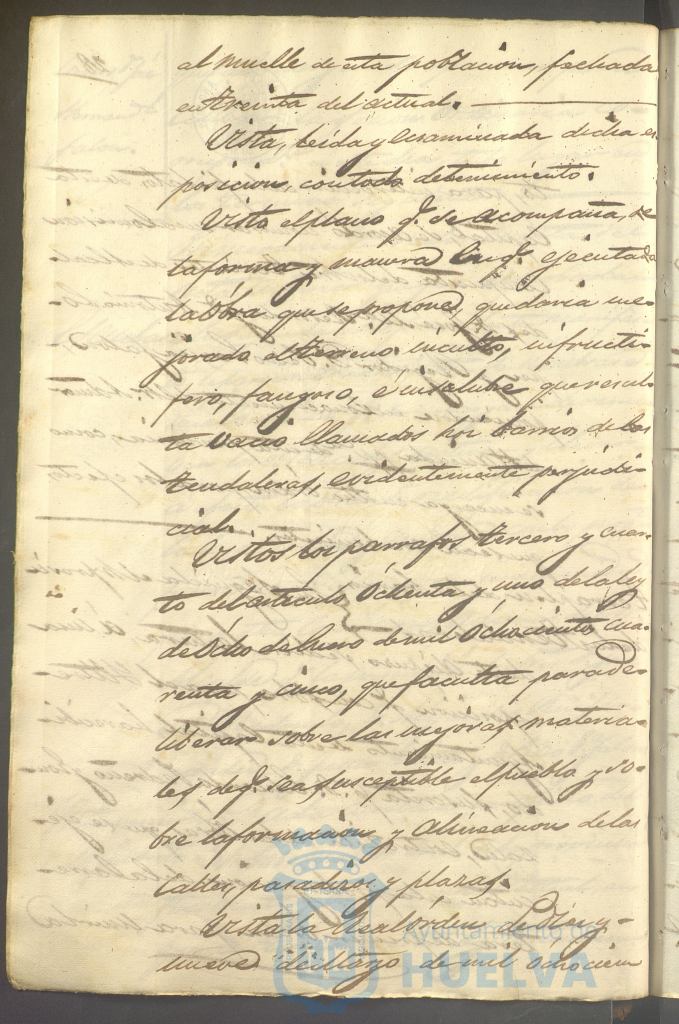 al Muelle de esta poblacion, fechada
en treinta del actual.
Vista, leida y ecsaminada dicha es-
posicion, con todo detenimiento.
Visto el plano q.e se acompaña, de
la forma y manera en q.e ejecutada
la Obra que se propone, quedaria me-
jorado el terreno inculto, infructi-
fero, fangoso, é insalubre que resul-
ta llamados hoi barrios de las
tendaleras, evidentemente perjudi-
cial.
Vistos los parrafos tercero y cuar-
to del articulo Ochenta y uno de la ley
de Ocho de Enero de mil Ochocientos cua-
renta y cinco, que faculta para de-
liberar sobre las mejoras materia-
les de q.e sea susceptible el pueblo y so-
bre la formacion y alineacion de las
calles, pasadizos y plazas.
Vista la Real Orden de Diez y
nueve de Mayo de mil ochocien
Ayuntamiento de
HUELVA